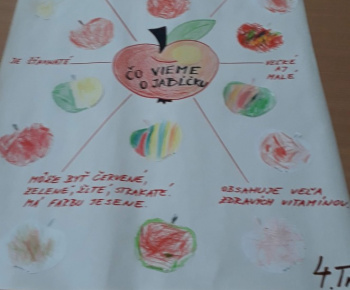 ČO VIEME
O JABĹČKU
JE ŠŤAVNATÉ
VEĽKÉ
AJ
MALÉ
MÔŽE BYŤ ČERVENÉ,
ZELENÉ, ŽLTÉ, STRAKATÉ.
MÁ FARBU JESENE.
OBSAHUJE VEĽA
ZDRAVÝCH VITAMÍNOV.
4. Tr